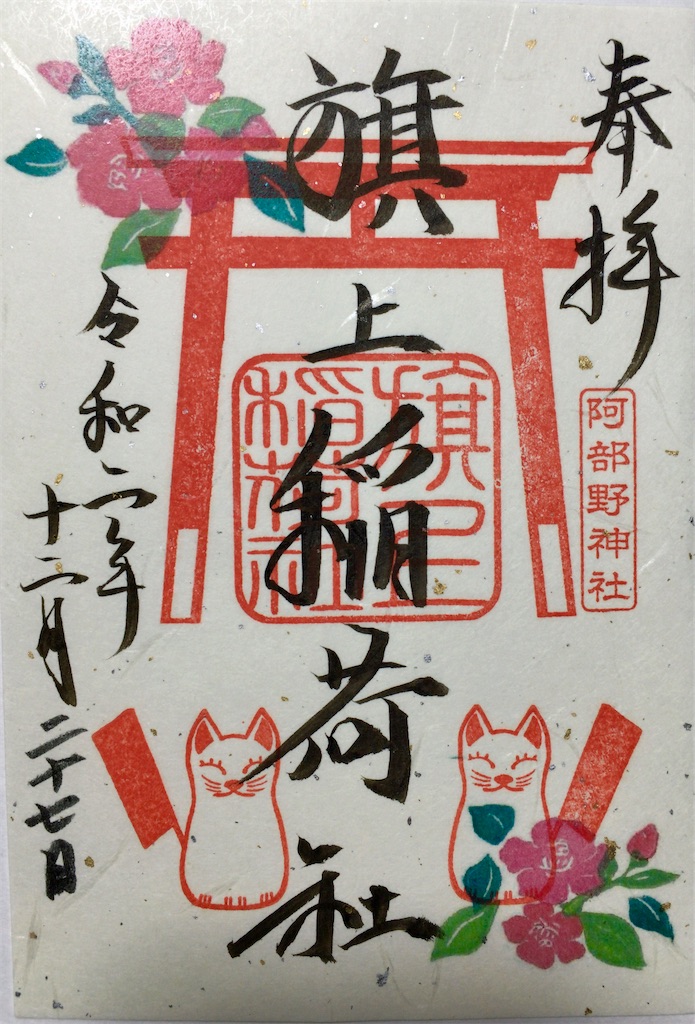 奉拝
阿部野神社
旗上稲荷社
旗上
稲荷社
令和二年
十二月
二十七日